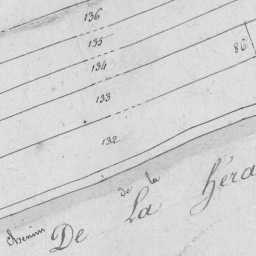 136
135
134
86
133
132
Chemin de la
De La Héra